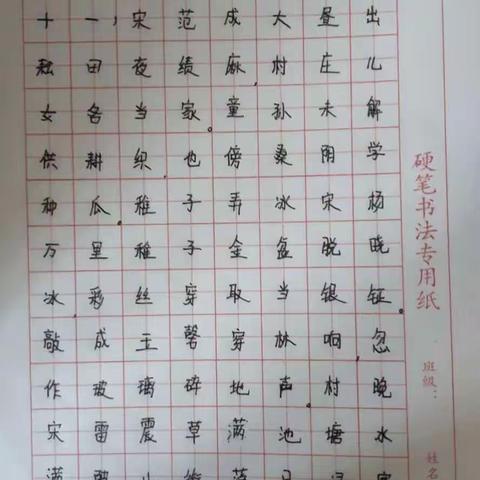 十一，宋范成大昼出
耘田夜绩麻，村庄儿
女各当家。童孙未解
供耕织，也傍桑阴学
种瓜。稚子弄冰宋杨
万里稚子金盆脱晓
冰，彩丝穿取当银钲。
敲成玉磬穿林响，忽
作玻璃碎地声。村晚
宋雷震草满池塘水
硬笔书法专用纸
班级：
姓名